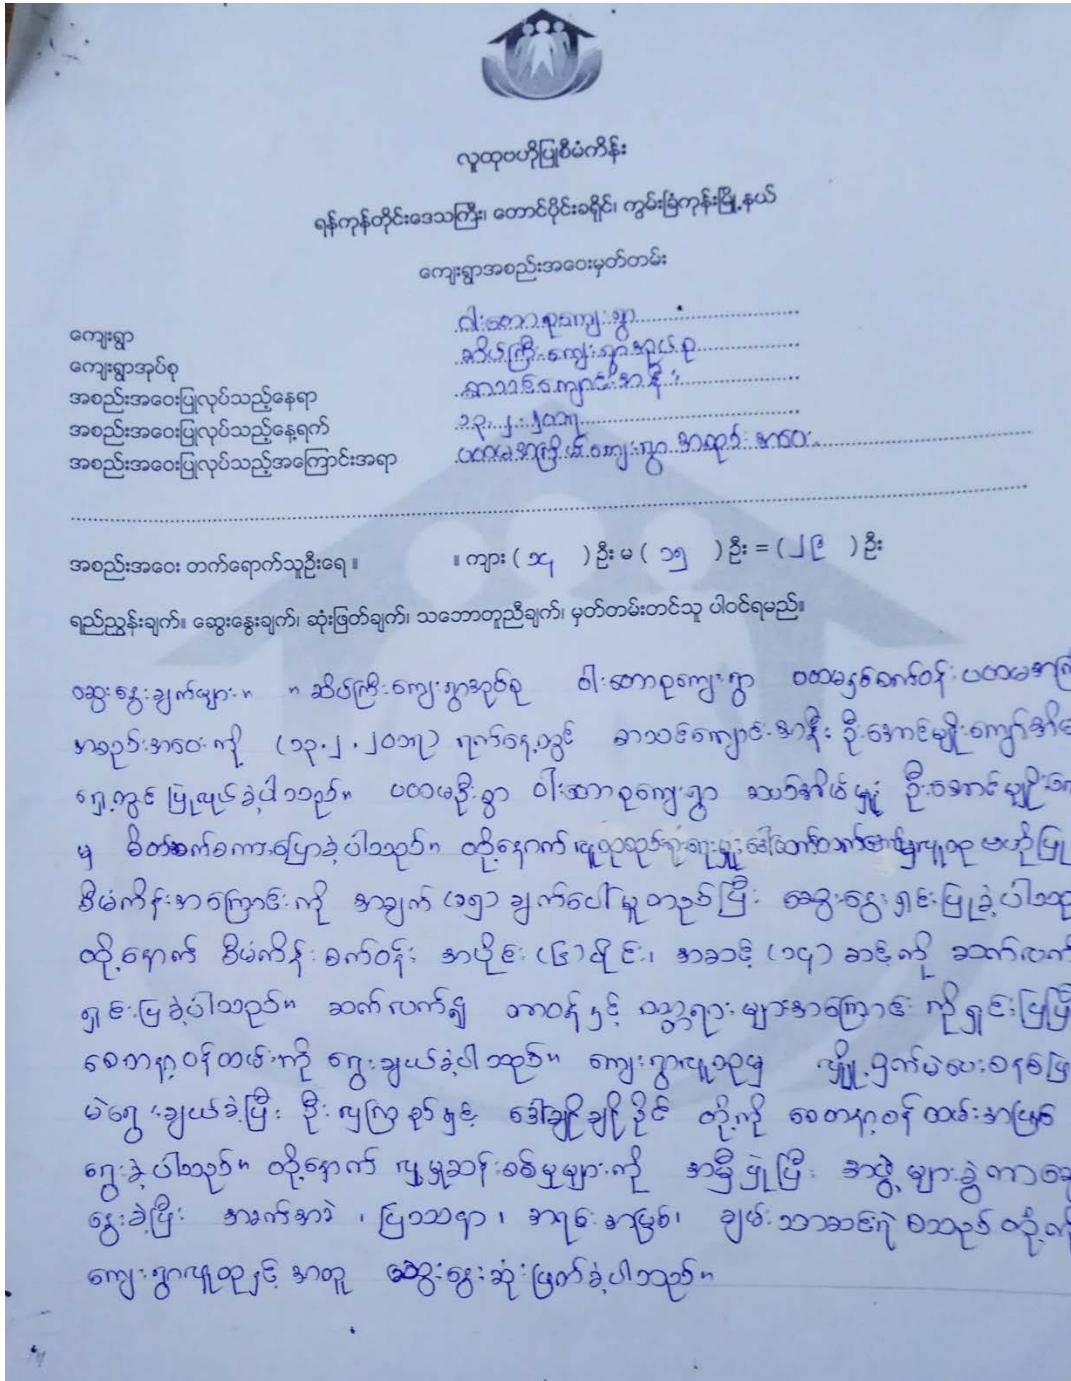 လူထုဗဟိုပြုစီမံကိန်း
ရန်ကုန်တိုင်းဒေသကြီး၊ တောင်ပိုင်းခရိုင်၊ ကွမ်းခြံကုန်းမြို့နယ်
ကျေးရွာအစည်းအဝေးမှတ်တမ်း
ကျေးရွာ ဝါးတောစုကျေးရွာ
ကျေးရွာအုပ်စု ဆိပ်ကြီးကျေးရွာအုပ်စု
အစည်းအဝေးပြုလုပ်သည့်နေရာ စာသင်ကျောင်းအနီး
အစည်းအဝေးပြုလုပ်သည့်နေ့ရက် ၁၃.၂.၂၀၁၇
အစည်းအဝေးပြုလုပ်သည့်အကြောင်းအရာ ပထမအကြိမ်ကျေးရွာ အစည်းအဝေး
အစည်းအဝေး တက်ရောက်သူဦးရေ ။ ။ ကျား ( ၁၄ ) ဦး မ ( ၁၅ ) ဦး = ( ၂၉ ) ဦး
ရည်ညွှန်းချက်။ ဆွေးနွေးချက်၊ ဆုံးဖြတ်ချက်၊ သဘောတူညီချက်၊ မှတ်တမ်းတင်သူ ပါဝင်ရမည်။
ဆွေးနွေးချက်များ။ ။ ဆိပ်ကြီးကျေးရွာအုပ်စု ဝါးတောစုကျေးရွာ ပထမနှစ်စက်ဝန်း ပထမအကြိ
အစည်းအဝေးကို (၁၃.၂.၂၀၁၇) ရက်နေ့တွင် စာသင်ကျောင်းအနီး ဦးအောင်မျိုးကျော်အိမ်
ရှေ့တွင် ပြုလုပ်ခဲ့ပါသည်။ ပထမဦးစွာ ဝါးတောစုကျေးရွာ ဆယ်အိမ်မှူး ဦးအောင်မျိုး
မှ မိတ်ဆက်စကားပြောခဲ့ပါသည်။ ထို့နောက် လူထုစည်းရုံးရေးမှူး လူထု ဗဟိုပြု
စီမံကိန်းအကြောင်းကို အချက် (၁၅) ချက်ပေါ်မူတည်ပြီး ဆွေးနွေးရှင်းပြခဲ့ပါသည်
ထို့နောက် စီမံကိန်းစက်ဝန်း အပိုင်း (၆) ပိုင်း၊ အဆင့် (၁၄) ဆင့်ကို ဆက်လက်
ရှင်းပြခဲ့ပါသည်။ ဆက်လက်၍ တာဝန်နှင့် ဝတ္တရားများအကြောင်း ကိုရှင်းပြပြီ
စေတနာ့ဝန်ထမ်းကို ရွေးချယ်ခဲ့ပါသည်။ ကျေးရွာလူထုမှ လျှို့ဝှက်မဲပေးစနစ်ဖြ
မဲရွေးချယ်ခဲ့ပြီး ဦးလှကြည်နှင့် ဒေါ်ချိုချိုခိုင် တို့ကို စေတနာ့ဝန်ထမ်းအဖြစ်
ရွေးခဲ့ပါသည်။ ထို့နောက် လူမှုဆန်းစစ်မှုများကို အမှီပြုပြီး အဖွဲ့များခွဲကာဆွေ
နွေးခဲ့ပြီး အခက်အခဲ၊ ပြဿနာ၊ အရင်းအမြစ်၊ ချမ်းသာဆင်းရဲ စသည် တို့ကို
ကျေးရွာလူထုနှင့် အတူ ဆွေးနွေးဆုံးဖြတ်ခဲ့ပါသည်။